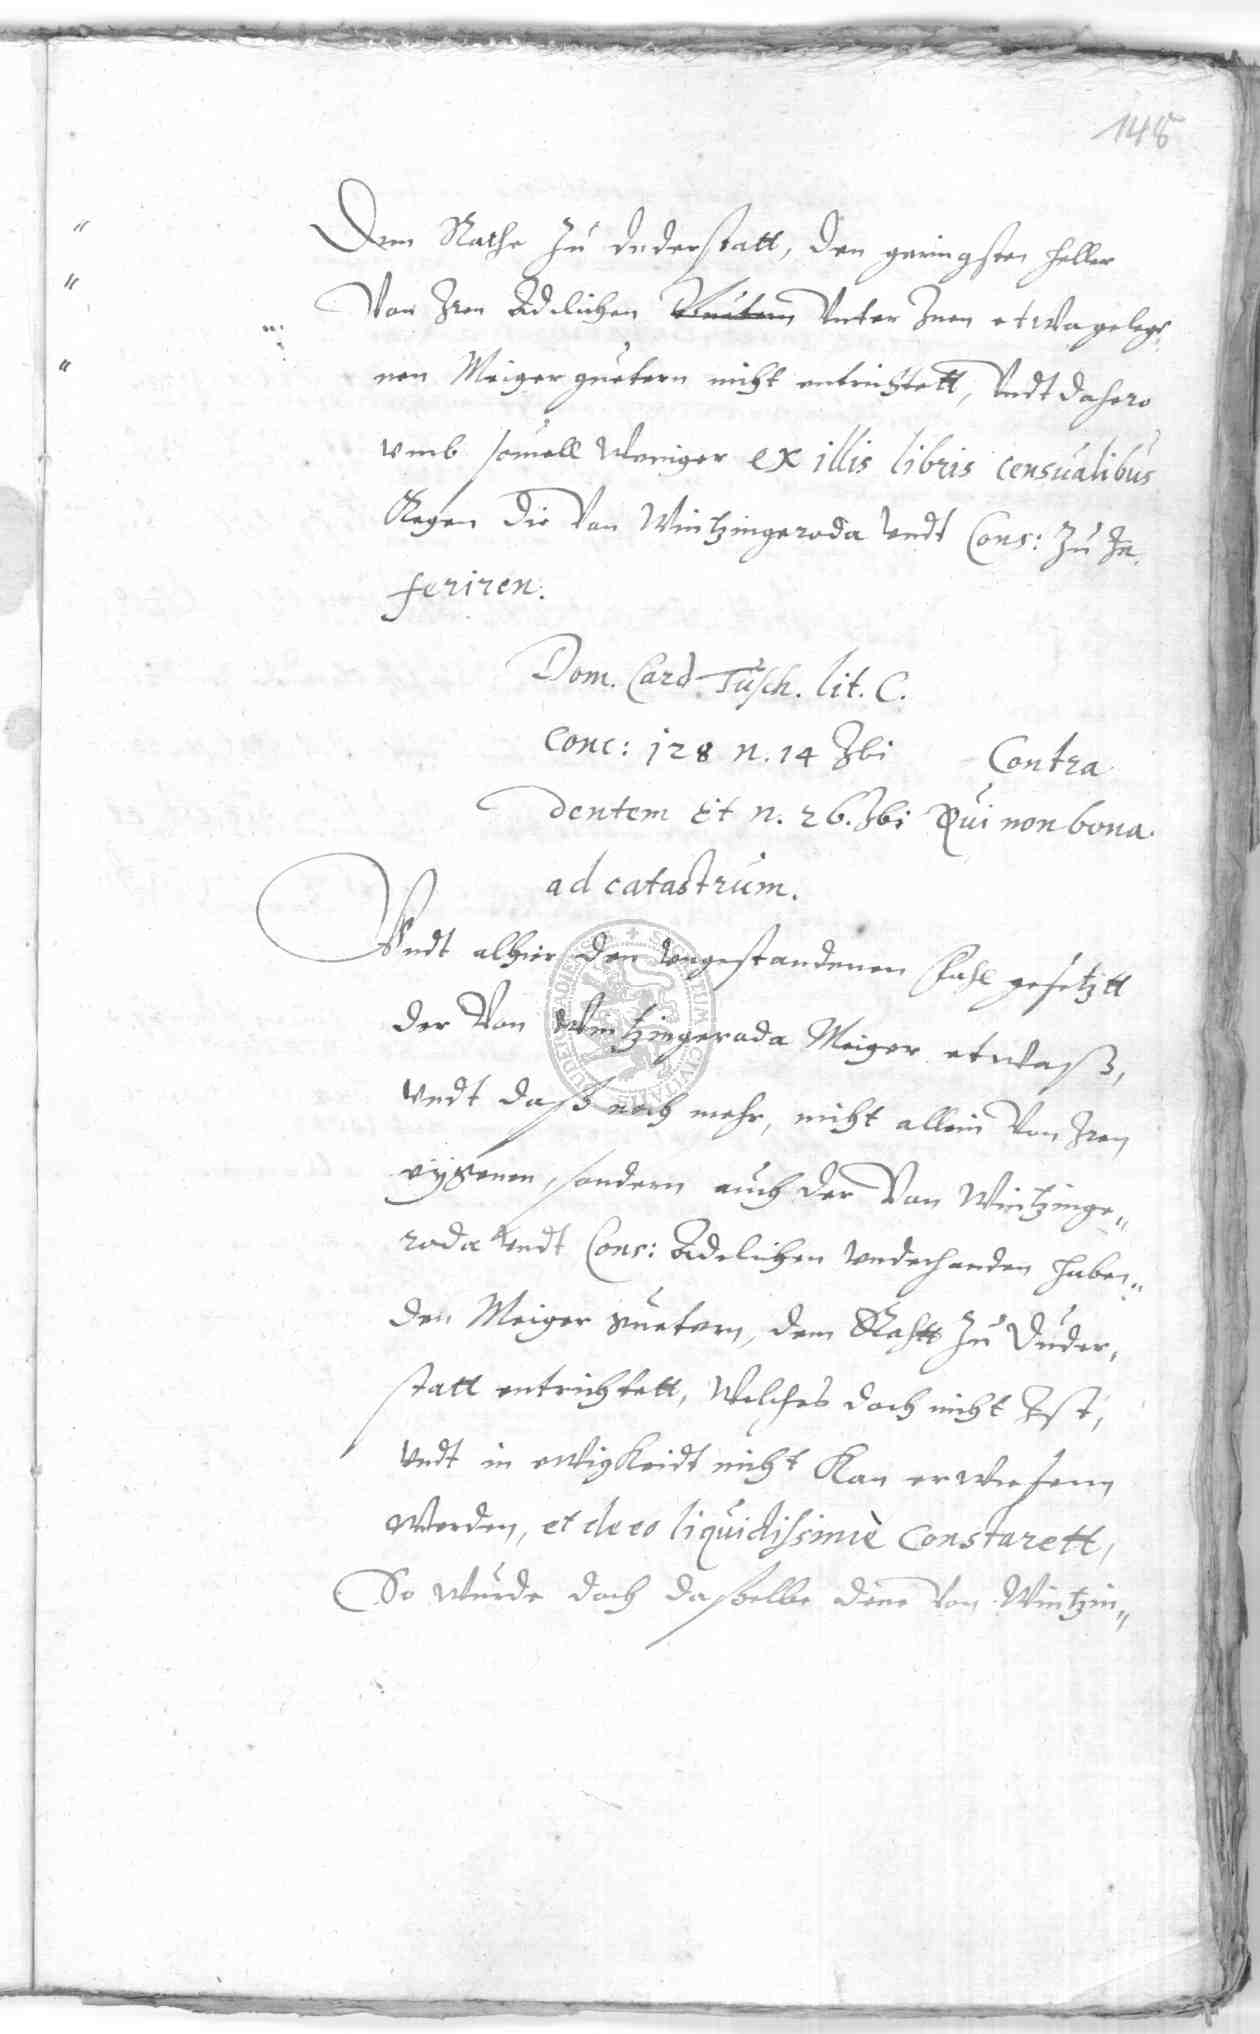 148
Dem Rathe zu Duderstatt, den geringsten heller
Von Iren Adelichen Guetern Vnter Inen etwa gelege
nen Meiger guetern nicht entrichtett, Vndt dahero
vmb souiell weniger ex illis libris censualibus
Kegen die Von Wintzingeroda Vndt Cons: zu In
feriren.
Dom. Card Tusch. lit. C.
Conc: 128 n. 14 Ibi Contra
dentem Et n. 26. Ibi Qui non bona
ad catastrum.
Vndt alhier den vngestandenen fahl gesetztt
der Von Wintzingeroda Meiger etwaß,
vndt daß noch mehr, nicht allein Von Iren
eygenen, sondern auch der Von Wintzinge"
roda Vndt Cons: Adelichen vnderhanden haben"
den Meiger guetern, dem Rahtt zu Duder,
statt entrichtett, Welches doch nicht Ist,
Vndt in ewigkeidt nicht Kan erwiesenn
Werden, et de eo liquidissimè Constarett,
So wurde doch daßelbe dene Von Wintzin"